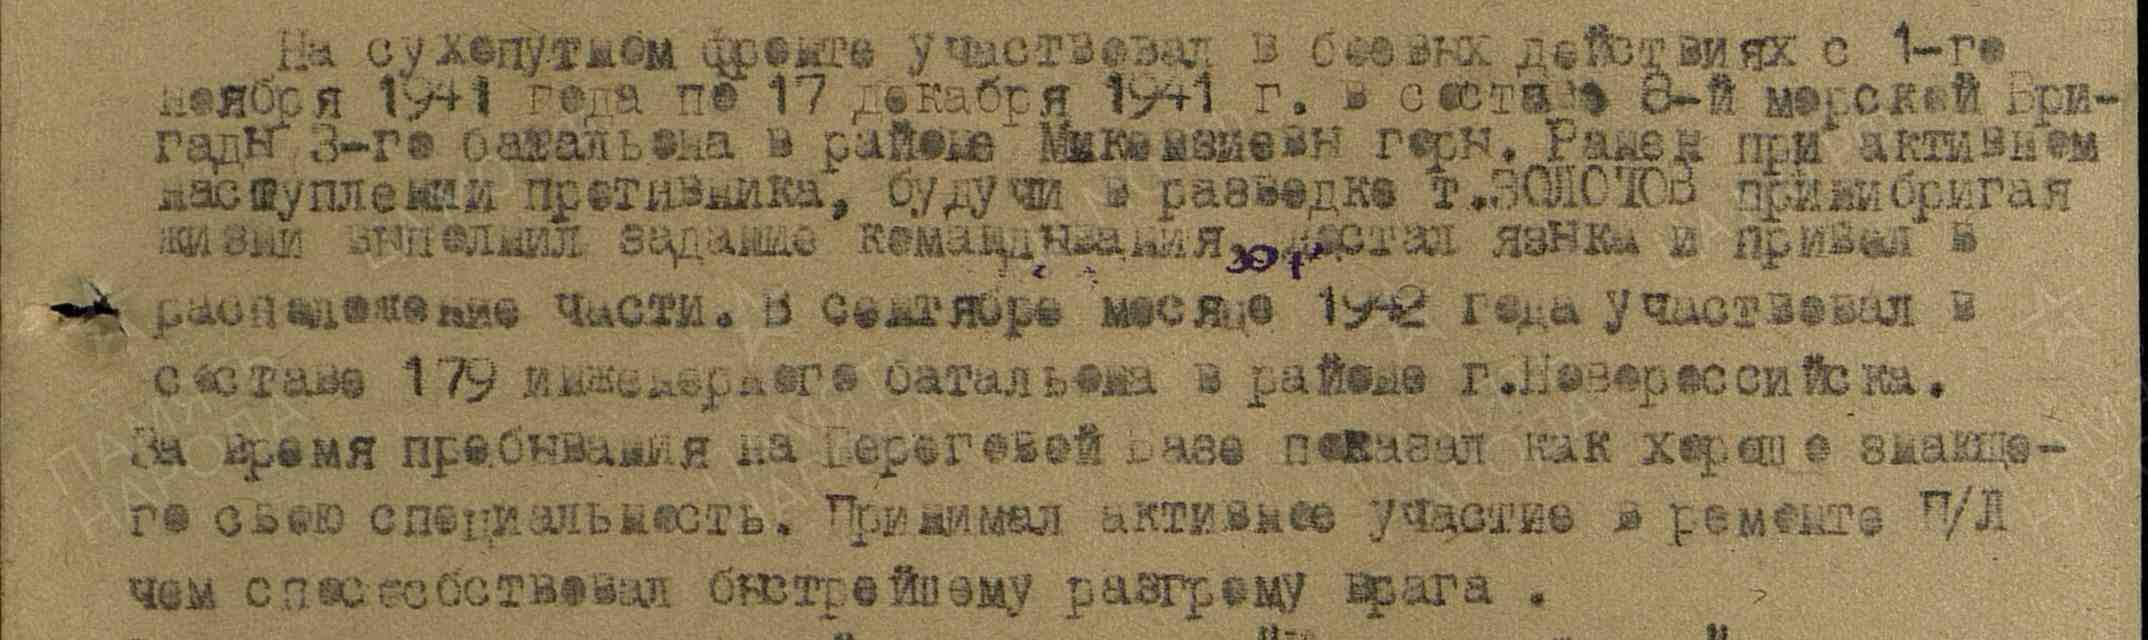 На сухопутном фронте участвовал в боевых действиях с 1-го
ноября 1941 года по 17 декабря 1941 г. в составе 8-й морской Бри-
гады 3-го батальона в районе Микензиевы горы. Ранен при активном
наступлении противника, будучи в разведке т.ЗОЛОТОВ принибригая
жизни выполнил задание командывания достал языка и привел в
расположение части. В сентябре месяце 1942 года участвовал в
составе 179 инженерного батальона в районе г.Новороссийска.
За время пребывания на Береговой Базе показал как хорошо знающе-
го свою специальность. Принимал активное участие в ремонте П/Л
чем способствовал быстрейшему разгрому врага .
ПАМЯТЬ НАРОДА